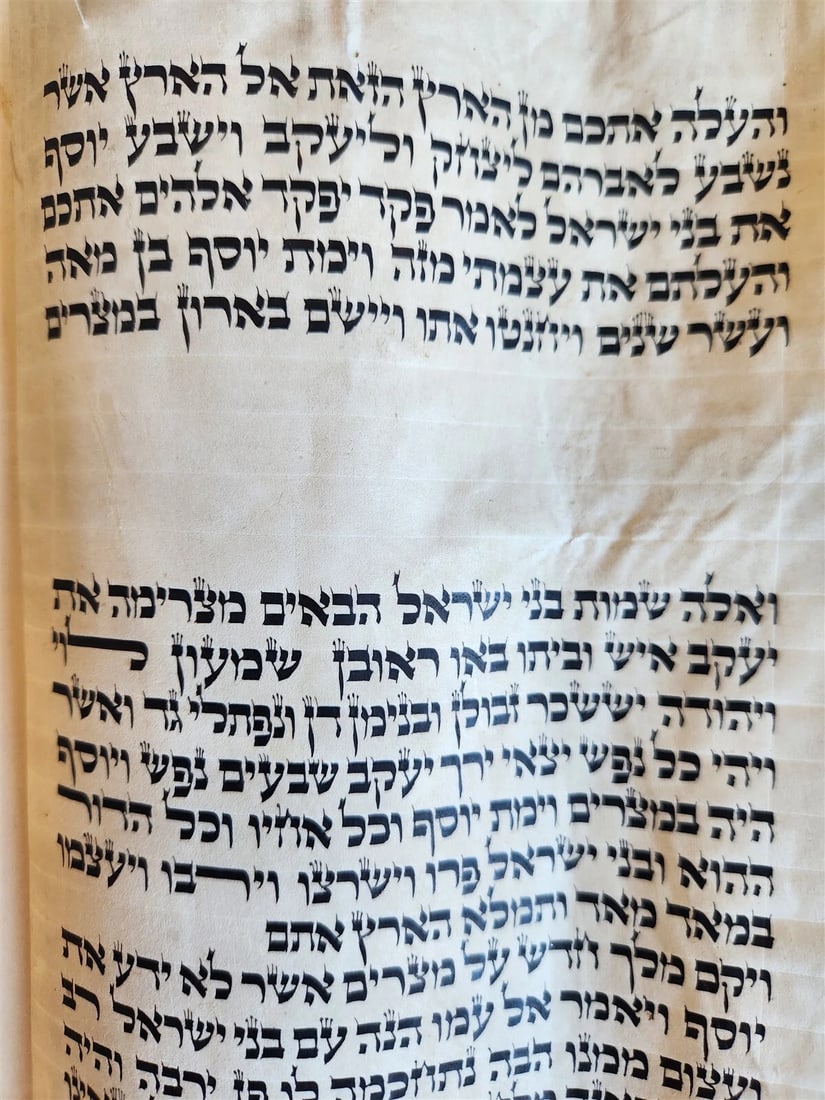 והעלה אתכם מן הארץ הזאת אל הארץ אשר
נשבע לאברהם ליצחק וליעקב וישבע יוסף
את בני ישראל לאמר פקד יפקד אלהים אתכם
והעלתם את עצמתי מזה וימת יוסף בן מאה
ועשר שנים ויחנטו אתו ויישם בארון במצרים
ואלה שמות בני ישראל הבאים מצרימה את
יעקב איש וביתו באו ראובן שמעון לוי
ויהודה יששכר זבולן ובנימן דן ונפתלי גד ואשר
ויהי כל נפש יצאי ירך יעקב שבעים נפש ויוסף
היה במצרים וימת יוסף וכל אחיו וכל הדור
ההוא ובני ישראל פרו וישרצו וירבו ויעצמו
במאד מאד ותמלא הארץ אתם
ויקם מלך חדש על מצרים אשר לא ידע את
יוסף ויאמר אל עמו הנה עם בני ישראל רב
ועצום ממנו הבה נתחכמה לו פן ירבה והיה